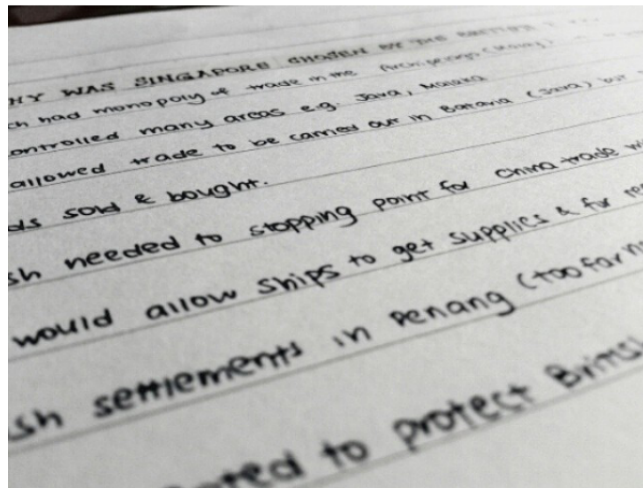 HY WAS SINGAPORE CHOSEN BY THE BRITISH
ch had monopoly of trade in the Archipelago (Malay)
ontrolled many areas e.g. Java, Malacca
allowed trade to be carried out in Batavia (Java) but
ds sold & bought.
sh needed to stopping point for China trade wi
would allow ships to get supplies & for re
sh settlements in Penang (too far n
nted to protect Britis